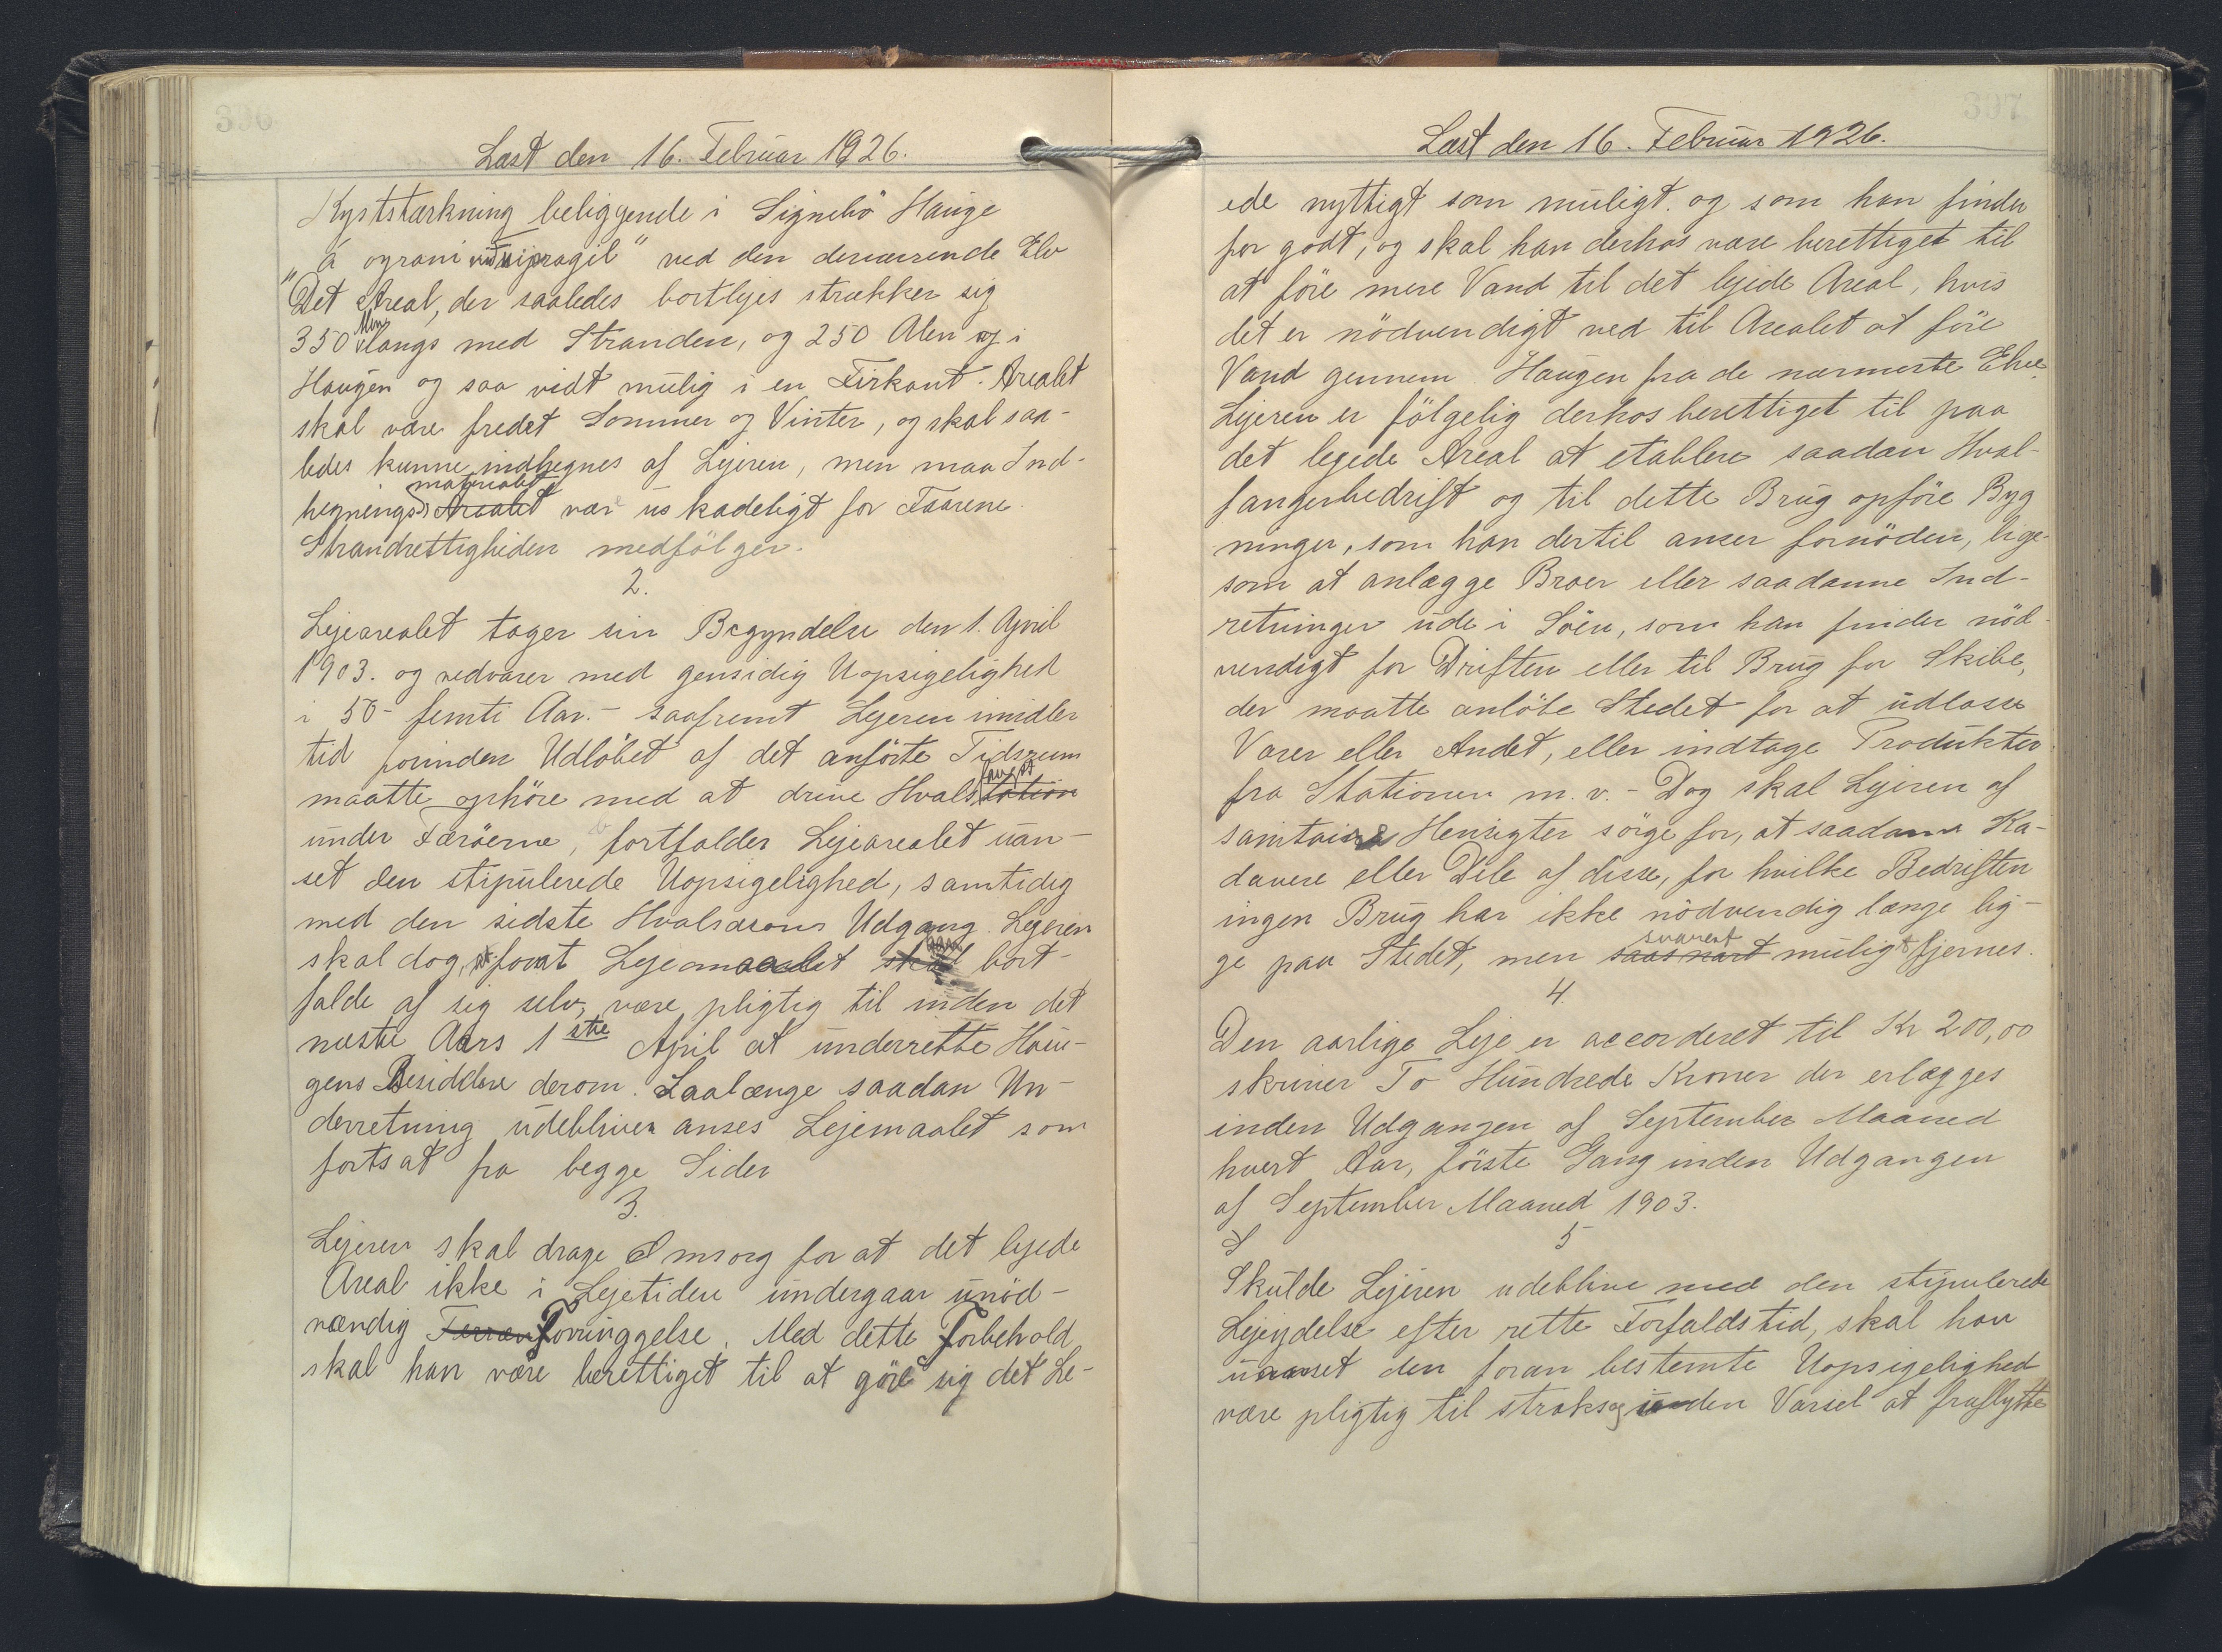 396
Læst den 16. Februar 1926.
Kyststærkning beliggende i Signebö Hauge
„á ograni við nipragil" ved den derværende Elv
Det Areal, der saaledes bortlejes strækker sig
350 Alen langs med Stranden, og 250 Alen op i
Haugen og saa vidt mulig i en Firkant. Arealet
skal være fredet Sommer og Vinter, og skal saa-
ledes kunne indhegnes af Lejeren, men maa Ind-
hegnings materialet Arealet vær uskadeligt for Faarene.
Strandrettigheden medfölger.
2.
Lejearealet tager sin Begyndelse den 1. April
1903. og vedvarer med gensidig Uopsigelighed
i 50 - femti Aar. - Saafremt Lejeren imidler
tid forinden Udløbet af det anförte Tidsrum
maatte ophöre med at drive Hvalfangst station
under Færöerne, bortfalder Lejearealet uan-
set den stipulerede Uopsigelighed, samtidig
med den sidste Hvalsæsons Udgang. Lejeren
skal dog, forat Lejemaalet skal kan bort-
falde af sig selv, være pligtig til inden det
næste Aars 1ste April at underrette Hau-
gens Besiddere derom. Saalænge saadan Un-
derretning udebliver anses Lejemaalet som
fortsat fra begge Sider
3.
Lejeren skal drage Omsorg for at det lejede
Areal ikke i Lejetiden undergaar unöd-
vændig Forringgelse. Med dette Forbehold
skal han være berettiget til at göre sig det Le-
397
Læst den 16. Februar 1926.
ede nyttigt som muligt. og som han finder
for godt, og skal han derhos være berettiget til
at före mere Vand til det lejede Areal, hvis
det er nödvendigt ved til Arealet at före
Vand gennem Haugen fra de nærmeste Elve.
Lejeren er fölgelig derhos berettiget til paa
det lejede Areal at etablere saadan Hval-
fangerbedrift og til dette Brug opföre Byg
ninger, som han dertil anser fornöden, lige-
som at anlægge Broer eller saadanne Ind-
retninger ude i Söen, som han finder nöd-
vendigt for Driften eller til Brug for Skibe,
der maatte anlöbe Stedet for at udlosse
Varer eller Andet, eller indtage Produkter
fra Stationen m. v. - Dog skal Lejeren af
sanitaire Hensigter sörge for, at saadanne Ka-
davere eller Dele af disse, for hvilke Bedriften
ingen Brug har ikke nödvendig længe lig-
ge paa Stedet, men saasnart snarest muligt fjernes.
4.
Den aarlige Leje er accorderet til Kr 200,00
skriver To Hundrede Kroner der erlægges
inden Udgangen af September Maaned
hvert Aar, förste Gang inden Udgangen
af September Maaned 1903.
S
5
Skulde Lejeren udeblive med den stipulerede
Lejeydelse efter rette Forfaldstid, skal han
uanset den foran bestemte Uopsigelighed
være pligtig til straks og uden Varsel at fraflytte